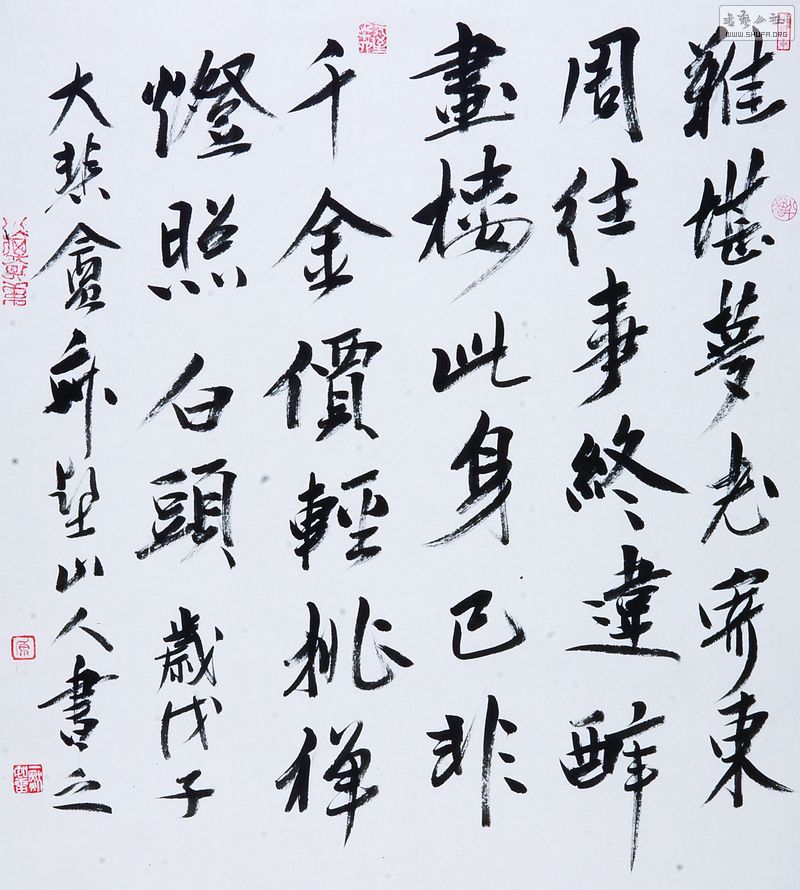 難堪夢老東
周往事終違醉
畫樓此身已非
千金價輕挑禪
燈照白頭歲戊子
大悲盦山人書之
书艺公社
WWW.SHUFA.ORG